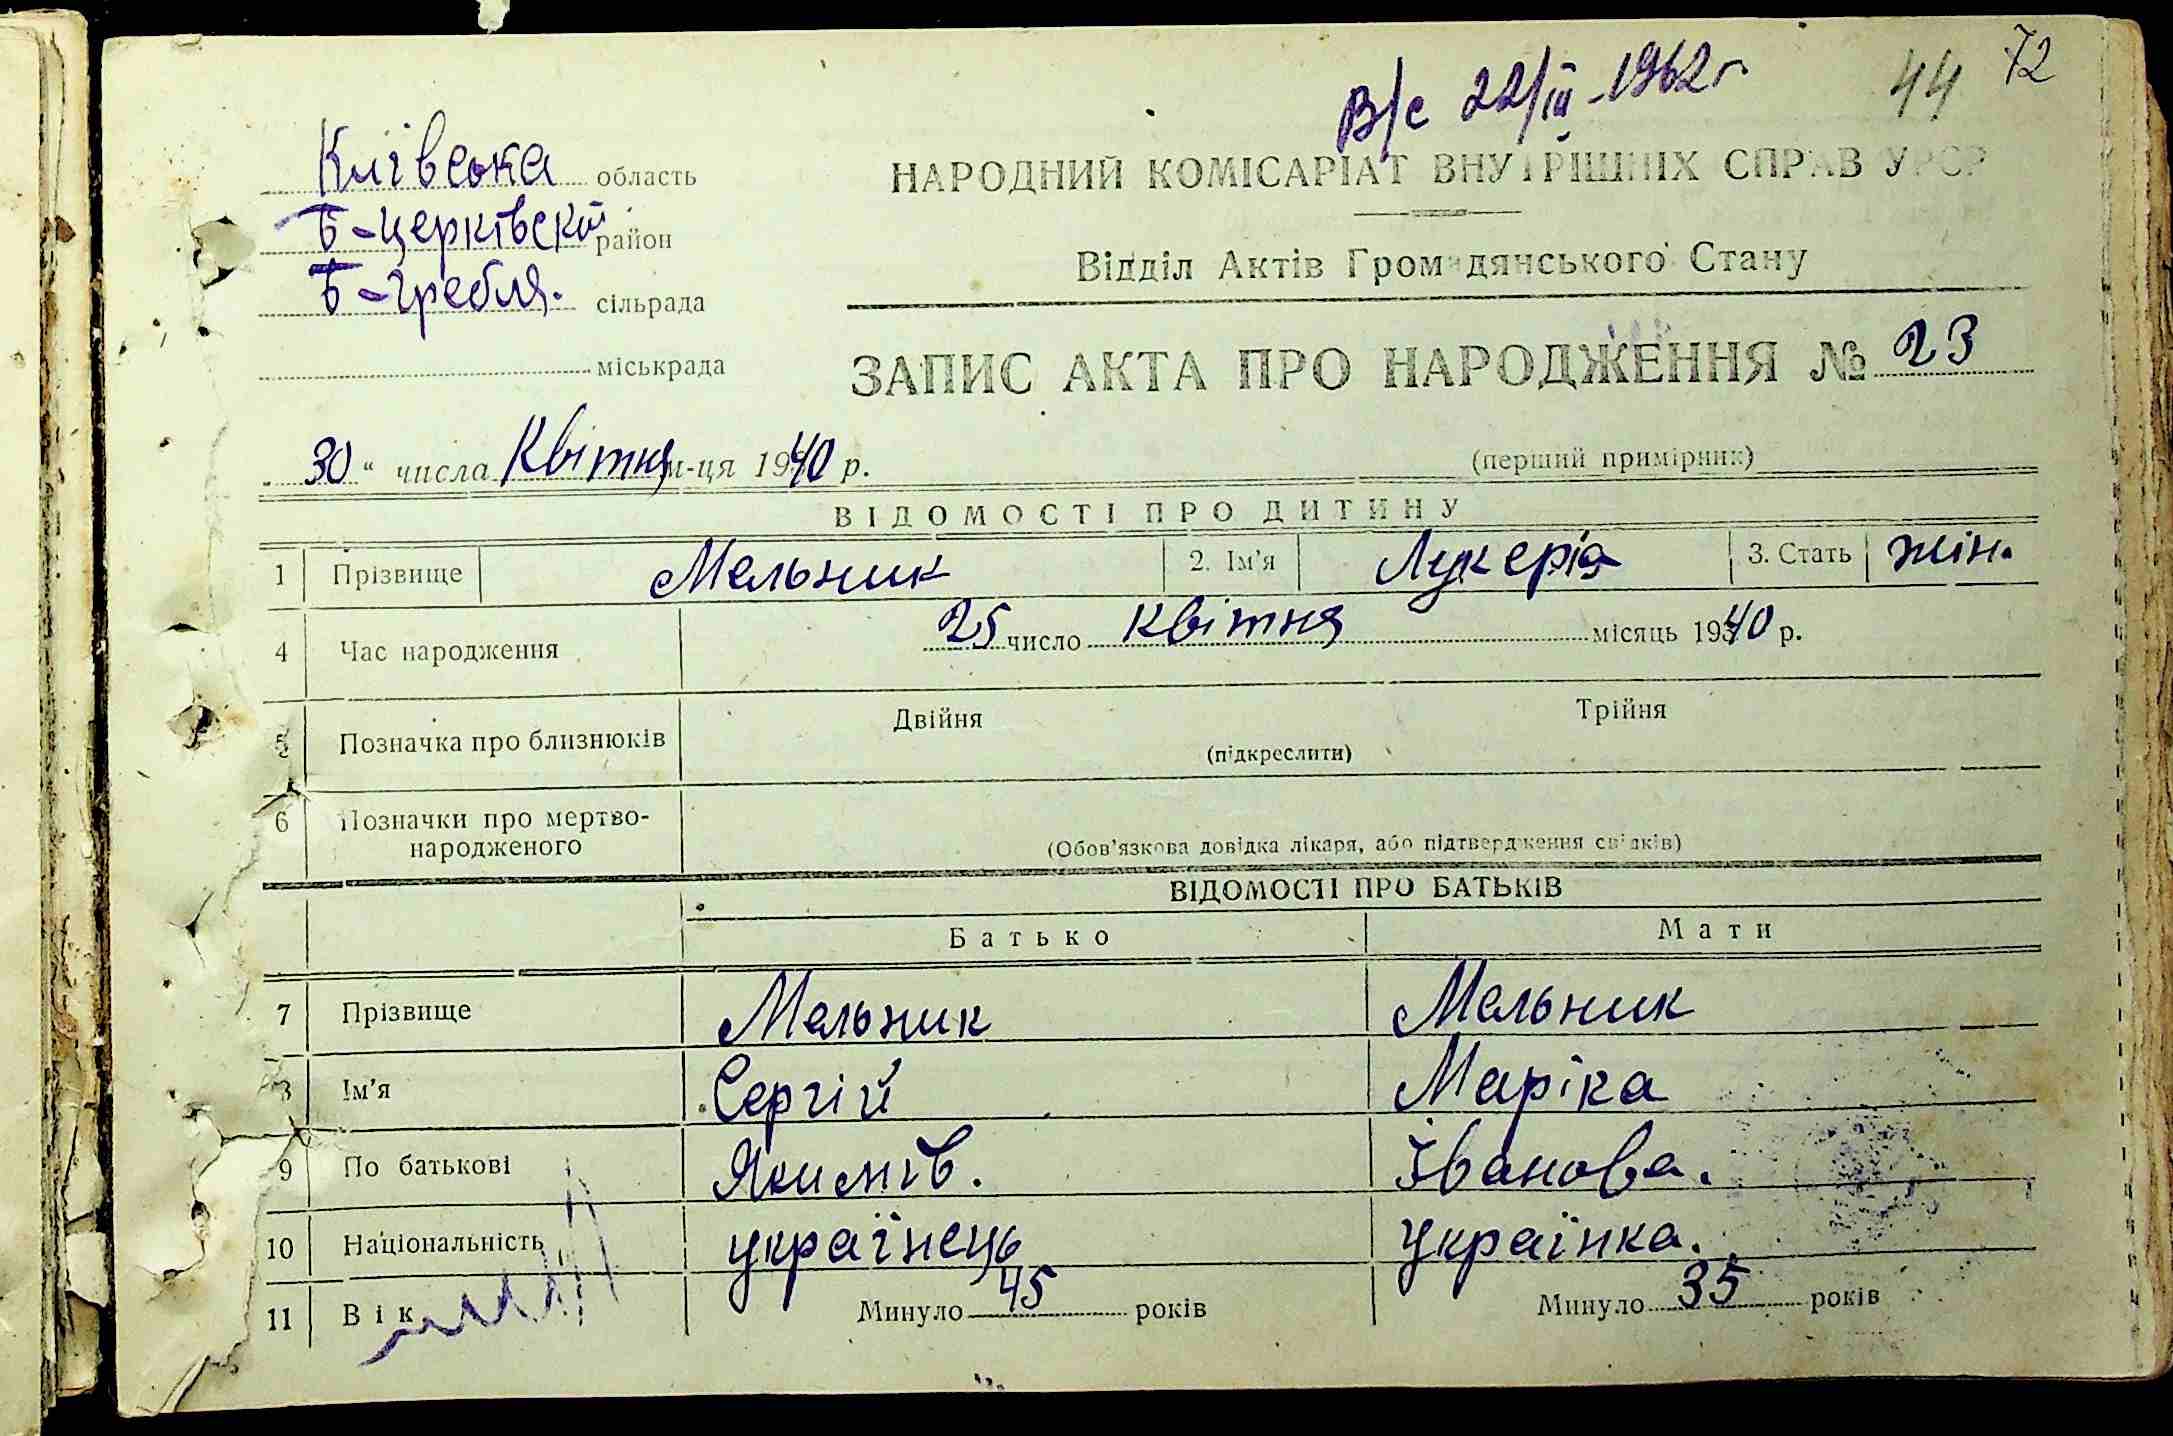 В/с 22/ІІІ-1962 г.
44 72
Київська область
Б-церківськ район
Б-Гребля. сільрада
міськрада
НАРОДНИЙ КОМІСАРІАТ ВНУТРІШНІХ СПРАВ УРСР
Відділ Актів Громадянського Стану
ЗАПИС АКТА ПРО НАРОДЖЕННЯ № 23
„30“ числа Квітня м-ця 1940 р.
(перший примірник)
ВІДОМОСТІ ПРО ДИТИНУ
1 Прізвище Мельник 2. Ім’я Лукерія 3. Стать жін.
4 Час народження 25 число Квітня місяць 1940 р.
5 Позначка про близнюків Двійня Трійня
(підкреслити)
6 Позначки про мертво-
народженого
(Обов’язкова довідка лікаря, або підтвердження свідків)
ВІДОМОСТІ ПРО БАТЬКІВ
Батько Мати
7 Прізвище Мельник Мельник
8 Ім’я Сергій Маріка
9 По батькові Якимів. Іванова.
10 Національність українець Українка.
11 Вік Минуло 45 років Минуло 35 років